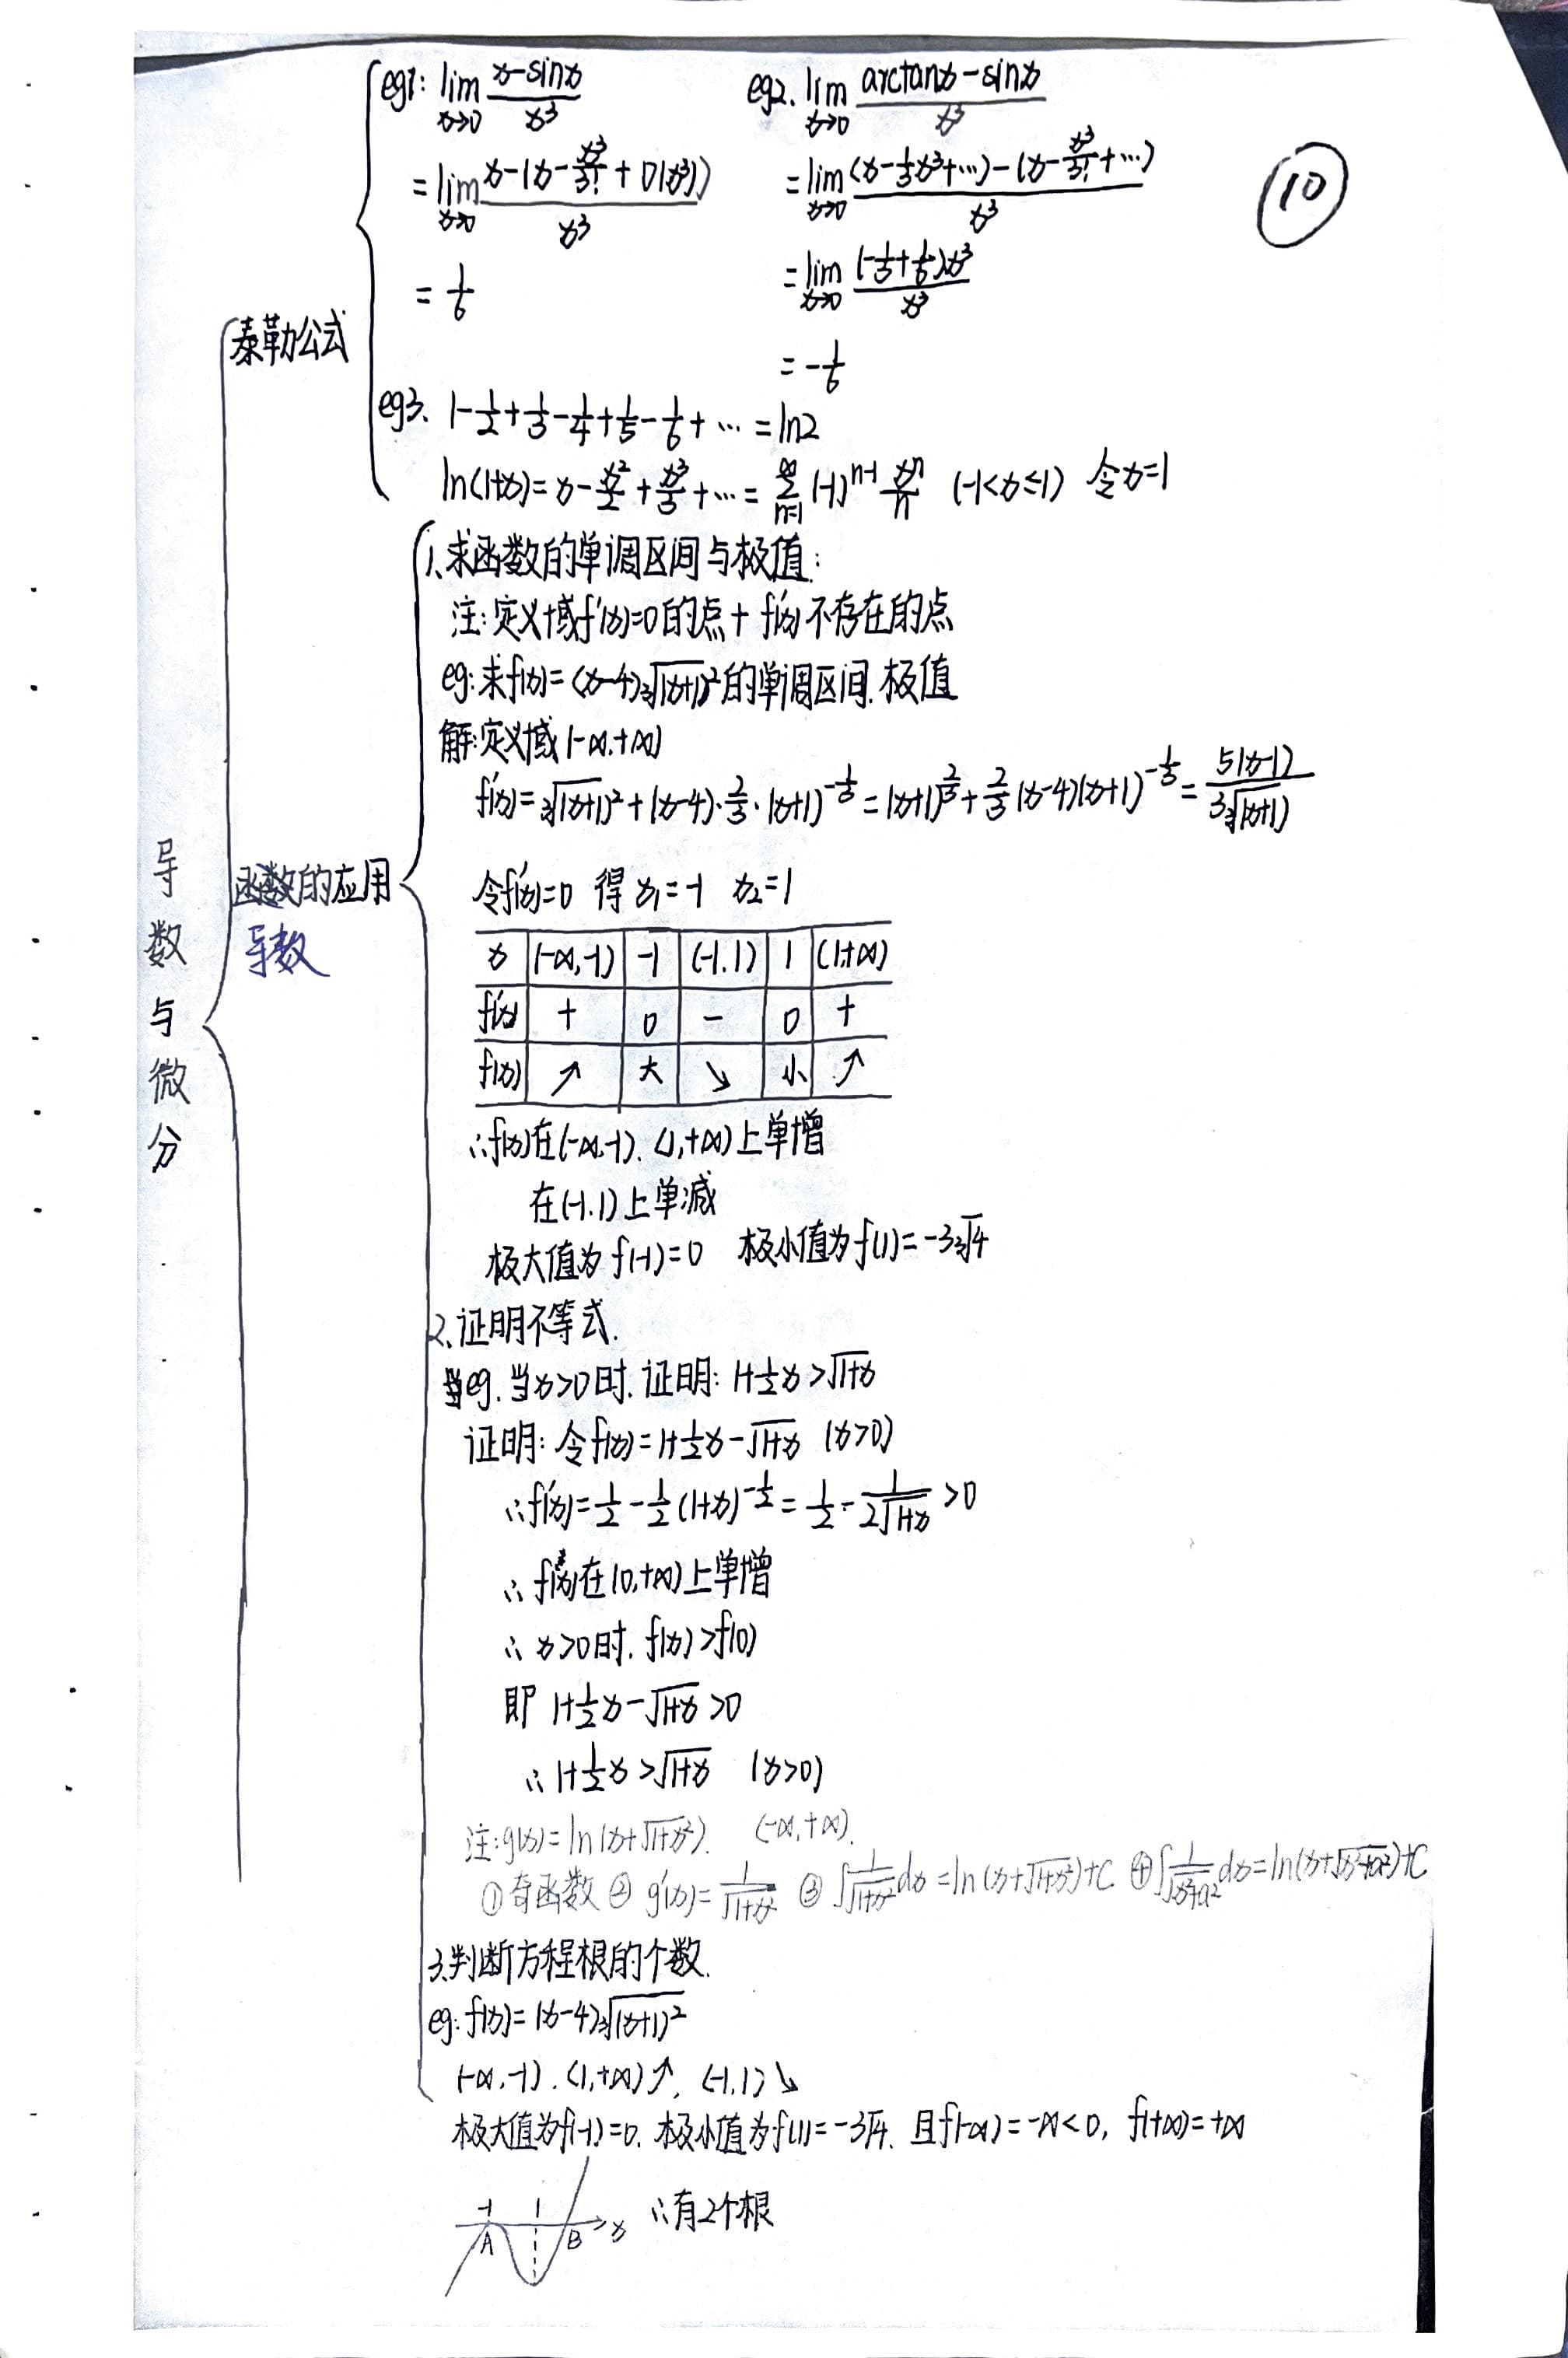 导数与微分
泰勒公式
eg1: lim_{x→0} (x-sinx)/x³
= lim_{x→0} (x-(x-x³/3!+0(x³)))/x³
= 1/6
eg2. lim_{x→0} (arctanx-sinx)/x³
= lim_{x→0} ((x-1/3x³+…)-(x-x³/3!+…))/x³
= lim_{x→0} ((-1/3+1/6)x³)/x³
= -1/6
⑩
eg3. 1-1/2+1/3-1/4+1/5-1/6+… = ln2
ln(1+x)= x-x²/2+x³/3+… = ∑_{n=1}^{∞} (-1)^{n-1} xⁿ/n (-1<x≤1) 令x=1
函数的应用
导数
1、求函数的单调区间与极值:
注:定义域f'(x)=0的点+f'(x)不存在的点
eg:求f(x)=(x-4)∛(x+1)²的单调区间.极值
解:定义域(-∞.+∞)
f'(x)=∛(x+1)²+(x-4)·2/3·(x+1)^{-1/3}=(x+1)^{2/3}+2/3(x-4)(x+1)^{-1/3}=5(x-1)/(3∛(x+1))
令f'(x)=0 得x₁=-1 x₂=1
x (-∞,-1) -1 (-1.1) 1 (1+∞)
f'(x) + 0 - 0 +
f(x) ↗ 大 ↘ 小 ↗
∴f(x)在(-∞,-1).(1,+∞)上单增
在(-1.1)上单减
极大值为f(-1)=0 极小值为f(1)=-3∛4
2、证明不等式.
eg.当x>0时.证明:1+1/2x>√(1+x)
证明:令f(x)=1+1/2x-√(1+x) (x>0)
∴f'(x)=1/2-1/2(1+x)^{-1/2}=1/2-1/(2√(1+x))>0
∴f(x)在(0,+∞)上单增
∴x>0时.f(x)>f(0)
即1+1/2x-√(1+x)>0
∴1+1/2x>√(1+x) (x>0)
注:g(x)=ln(x+√(1+x²)). (-∞,+∞).
①奇函数 ② g'(x)=1/√(1+x²) ③ ∫1/√(1+x²)dx=ln(x+√(1+x²))+C ④∫1/√(x²+a²)dx=ln(x+√(x²+a²))+C
3、判断方程根的个数.
eg:f(x)=(x-4)∛(x+1)²
(-∞,-1).(1,+∞)↗, (-1,1)↘
极大值为f(-1)=0.极小值为f(1)=-3√4.且f(-∞)=-∞<0, f(+∞)=+∞
-1 1
A B x ∴有2个根